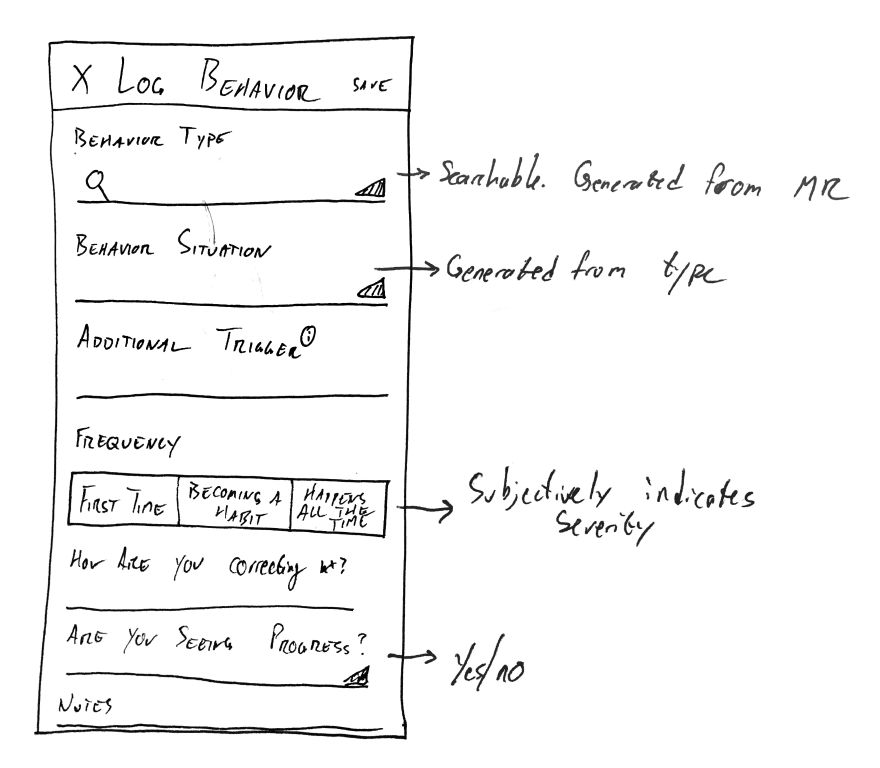 X LOG BEHAVIOR SAVE
BEHAVIOR TYPE
Searchable. Generated from MR
BEHAVIOR SITUATION
Generated from type
ADDITIONAL TRIGGER i
FREQUENCY
FIRST TIME
BECOMING A
HABIT
HAPPENS
ALL THE
TIME
Subjectively indicates
Severity
HOW ARE YOU correcting it?
ARE YOU SEEING PROGRESS?
Yes/no
NOTES